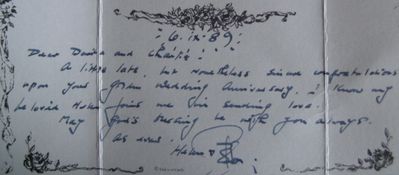 6.ix.89.
Dear David and Charlie:
A little late, but nonetheless sincere congratulations
upon your golden Wedding Anniversary. I know my
beloved Helen joins me in sending love.
May God's blessing be with you always.
As ever, Helen &